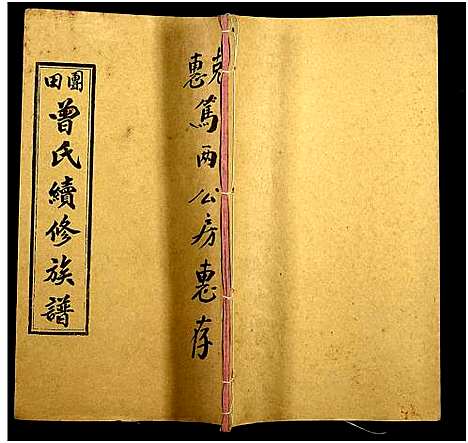 惠篤两公房惠存
團田
曾氏續修族譜